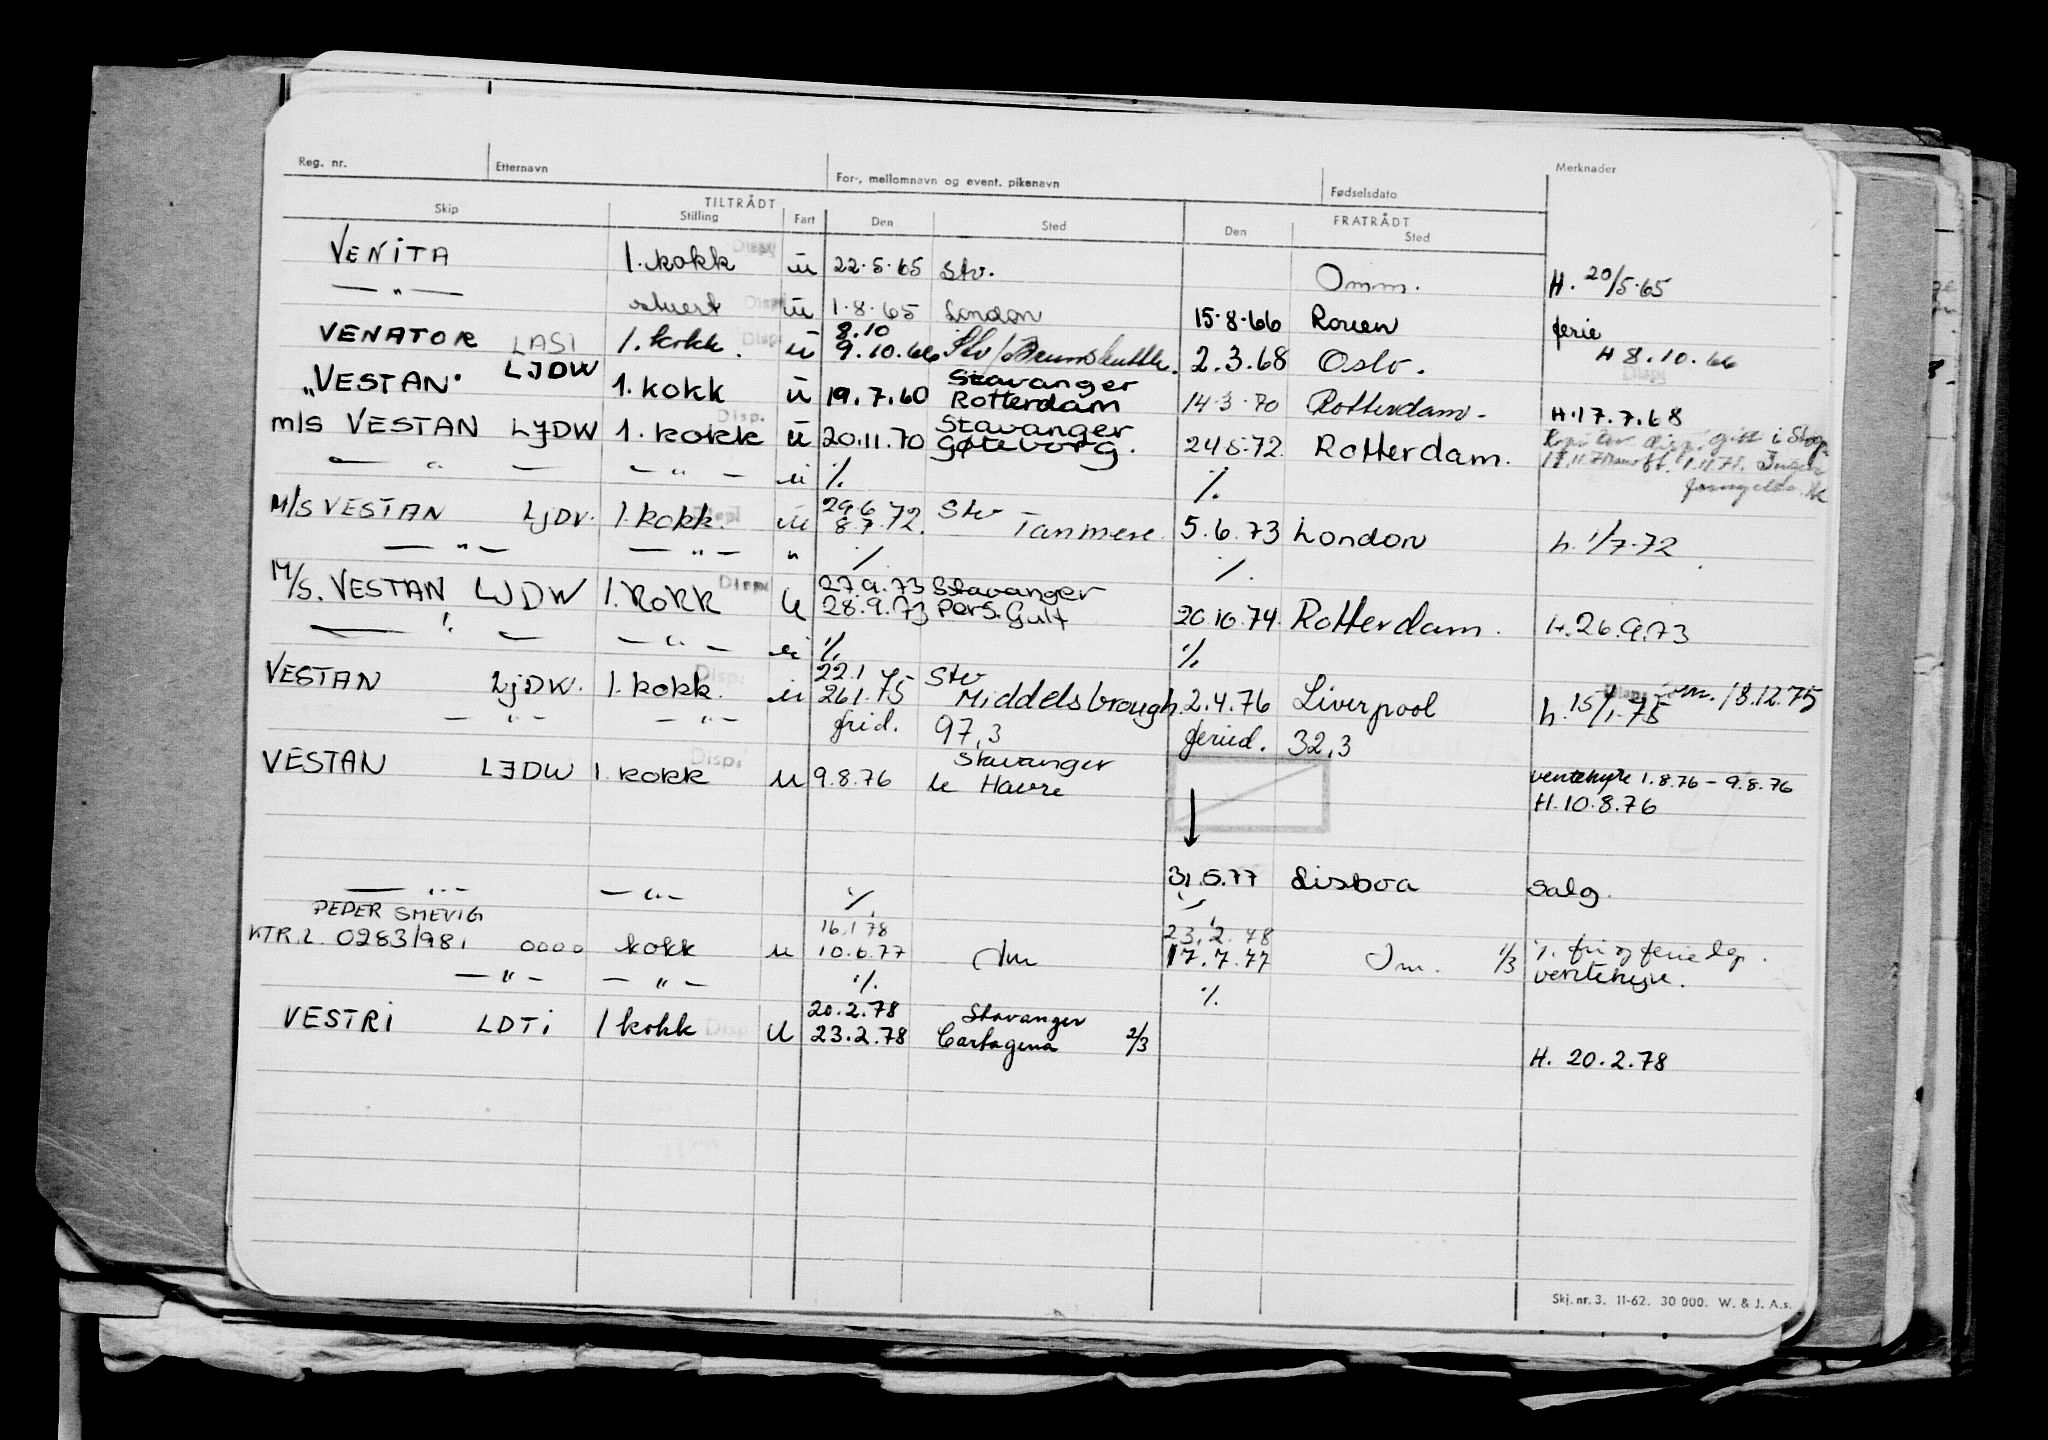 Reg. nr. Etternavn For-, mellomnavn og event. pikenavn Fødselsdato Merknader
TILTRÅDT FRATRÅDT
Skip Stilling Fart Den Sted Den Sted
VENITA 1. kokk Disp u 22.5.65 Stv. Omm. H. 20/5.65
— " — stuert Disp u 1.8.65 London 15.8.66 Rouen ferie
8.10
VENATOR LASI 1. kokk. Disp u 9.10.66 Stv/ 2.3.68 Oslo. H 8.10.66
Disp
Stavanger
"VESTAN" LJDW 1. kokk u 19.7.60 Rotterdam 14.3.70 Rotterdam. H.17.7.68
Disp. Stavanger
M/S VESTAN LJDW 1. kokk u 20.11.70 Gøteborg. 24.5.72. Rotterdam.
— " — — " — u %. %.
29.6 Stv
M/S VESTAN LJDV. 1. kokk. Disp u 8.7.72. Tanmere 5.6.73 London h. 1/7.72
— " — — " — " %. %.
27.9.73 Stavanger
M/S. VESTAN LJDW 1. kokk Disp u 28.9.73 Pers. Gulf 20.10.74. Rotterdam. H. 26.9.73
— " — — " — u %. %.
22.1 75 Stv
VESTAN LJDW. 1. kokk. Disp. u 26.1.75 Middelsbrough. 2.4.76 Liverpool h. 15/1.75 18.12.75
— " — — " — frid. 97,3 feried. 32,3
Stavanger
VESTAN LJDW 1. kokk Disp. u 9.8.76 le Havre ventehyre 1.8.76 – 9.8.76
H. 10.8.76
31.5.77 Lisboa Salg.
— " — — " — %. %
PEDER SMEVIG 16.1 78 23.2.78
KTR.L. 0283/981 0000 kokk u 10.6.77 Inn 17.7.77 Inn. 1/3 %. fri og ferie
— " — — " — %. %. ventehyre.
20.2.78 Stavanger
VESTRI LDTI 1 kokk Disp u 23.2.78 Cartagena 2/3
H. 20.2.78
Skj. nr. 3. 11-62. 30 000. W. & J. A.s.